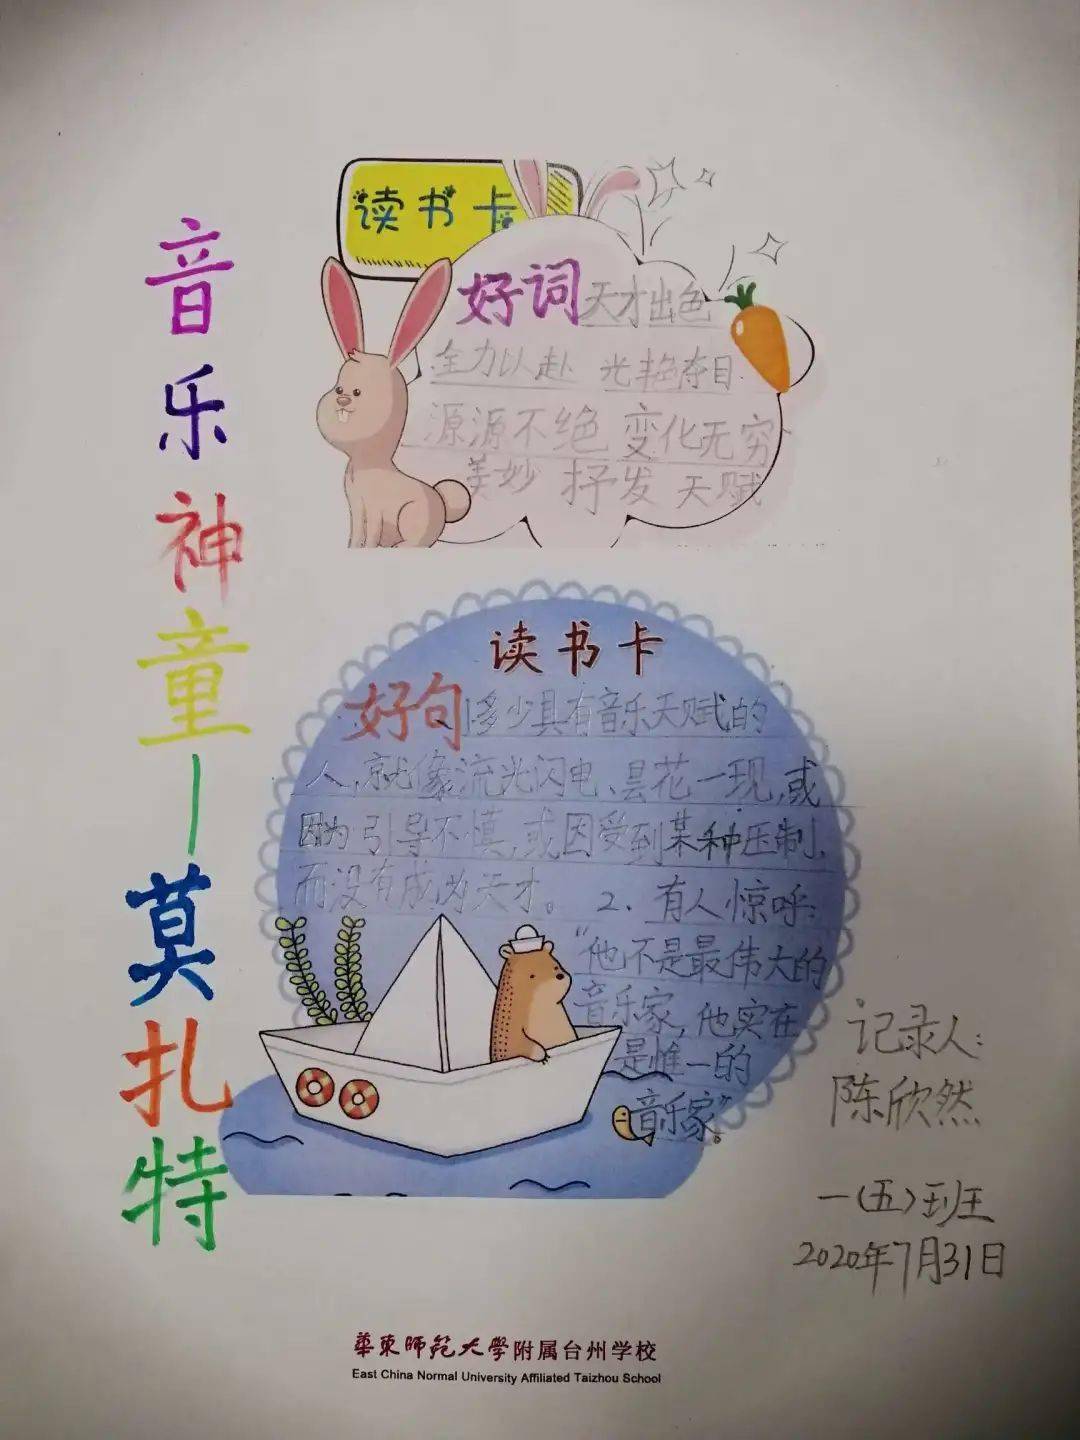 音乐神童—莫扎特
读书卡
好词 天才 出色
全力以赴 光艳夺目
源源不绝 变化无穷
美妙 抒发 天赋
读书卡
好句 1多少具有音乐天赋的
人,就像流光闪电、昙花一现,或
因为引导不慎,或因受到某种压制,
而没有成为天才。 2. 有人惊呼:
“他不是最伟大的
音乐家,他实在
是惟一的
音乐家”。
记录人:
陈欣然
一(五)班
2020年7月31日
華東師範大學附属台州学校
East China Normal University Affiliated Taizhou School